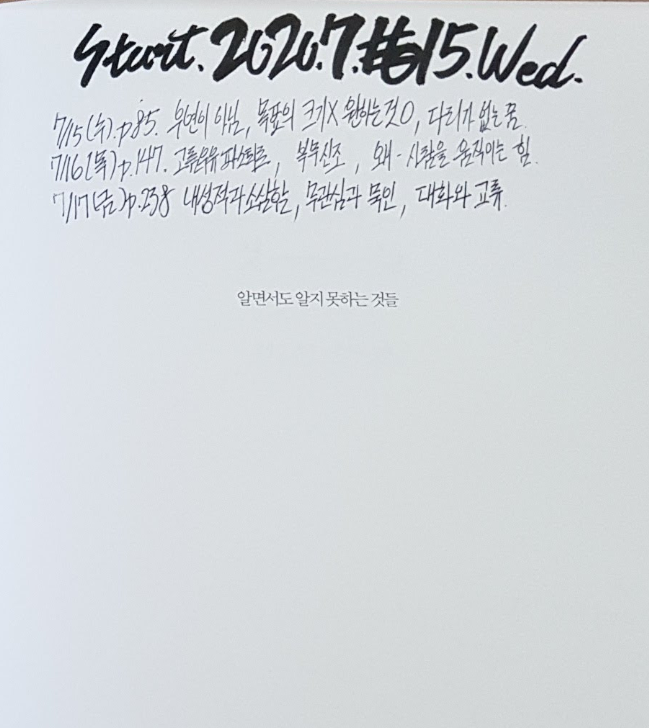 Start. 2020. 7. 15. Wed.
7/15(수). p85. 우연이 아님, 목표의 크기X 원하는 것O, 다리가 없는 꿈.
7/16(목). p.147. , 복무신조, 왜 - 사람을 움직이는 힘.
7/17(금) p.238 내성적과 소심함, 무관심과 묵인, 대화와 교류.
알면서도 알지 못하는 것들